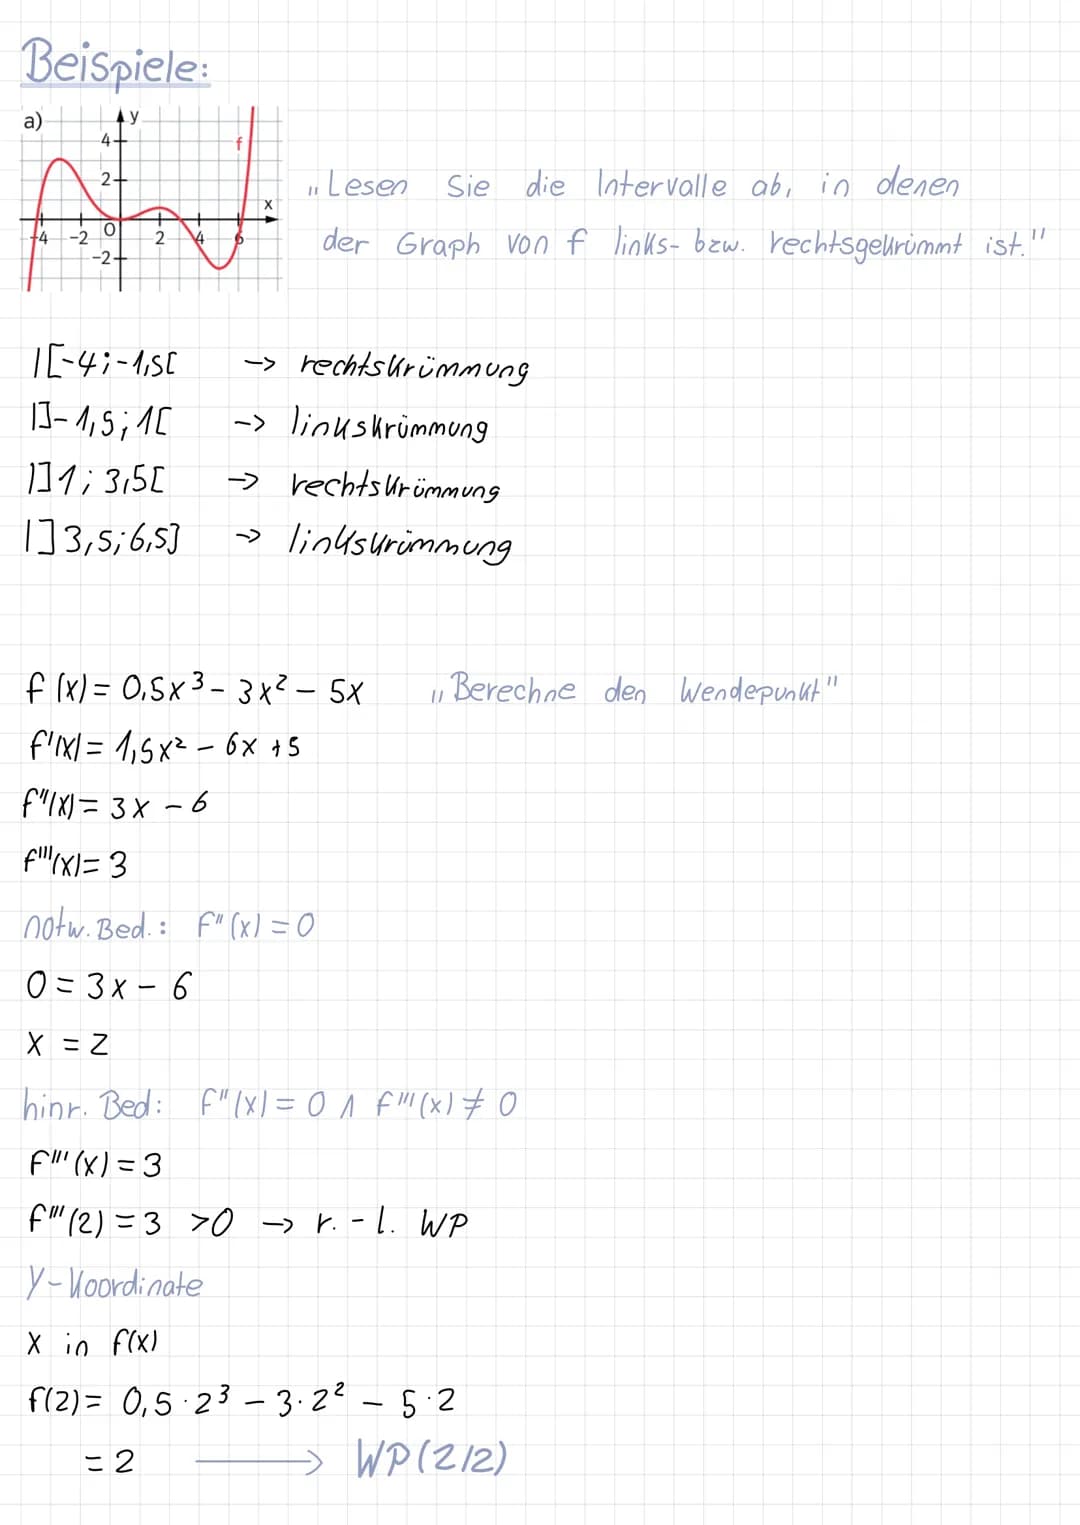 Beispiele:
a)
y
4
f
2
x
-4 -2 0 2 4 6
-2
„Lesen Sie die Intervalle ab, in denen
der Graph von f links- bzw. rechtsgekrümmt ist."
I[-4;-1,5[ -> rechtskrümmung
I]-1,5;1[ -> linkskrümmung
I]1;3,5[ -> rechtskrümmung
I]3,5;6,5] -> linkskrümmung
f(x) = 0,5x³ - 3x² - 5x „Berechne den Wendepunkt"
f'(x) = 1,5x² - 6x +5
f''(x) = 3x - 6
f'''(x) = 3
notw. Bed.: f''(x) = 0
0 = 3x - 6
x = 2
hinr. Bed: f''(x) = 0 ∧ f'''(x) ≠ 0
f'''(x) = 3
f'''(2) = 3 >0 -> r. - l. WP
Y-Koordinate
x in f(x)
f(2) = 0,5·2³ - 3·2² - 5·2
= 2 → WP(2/2)